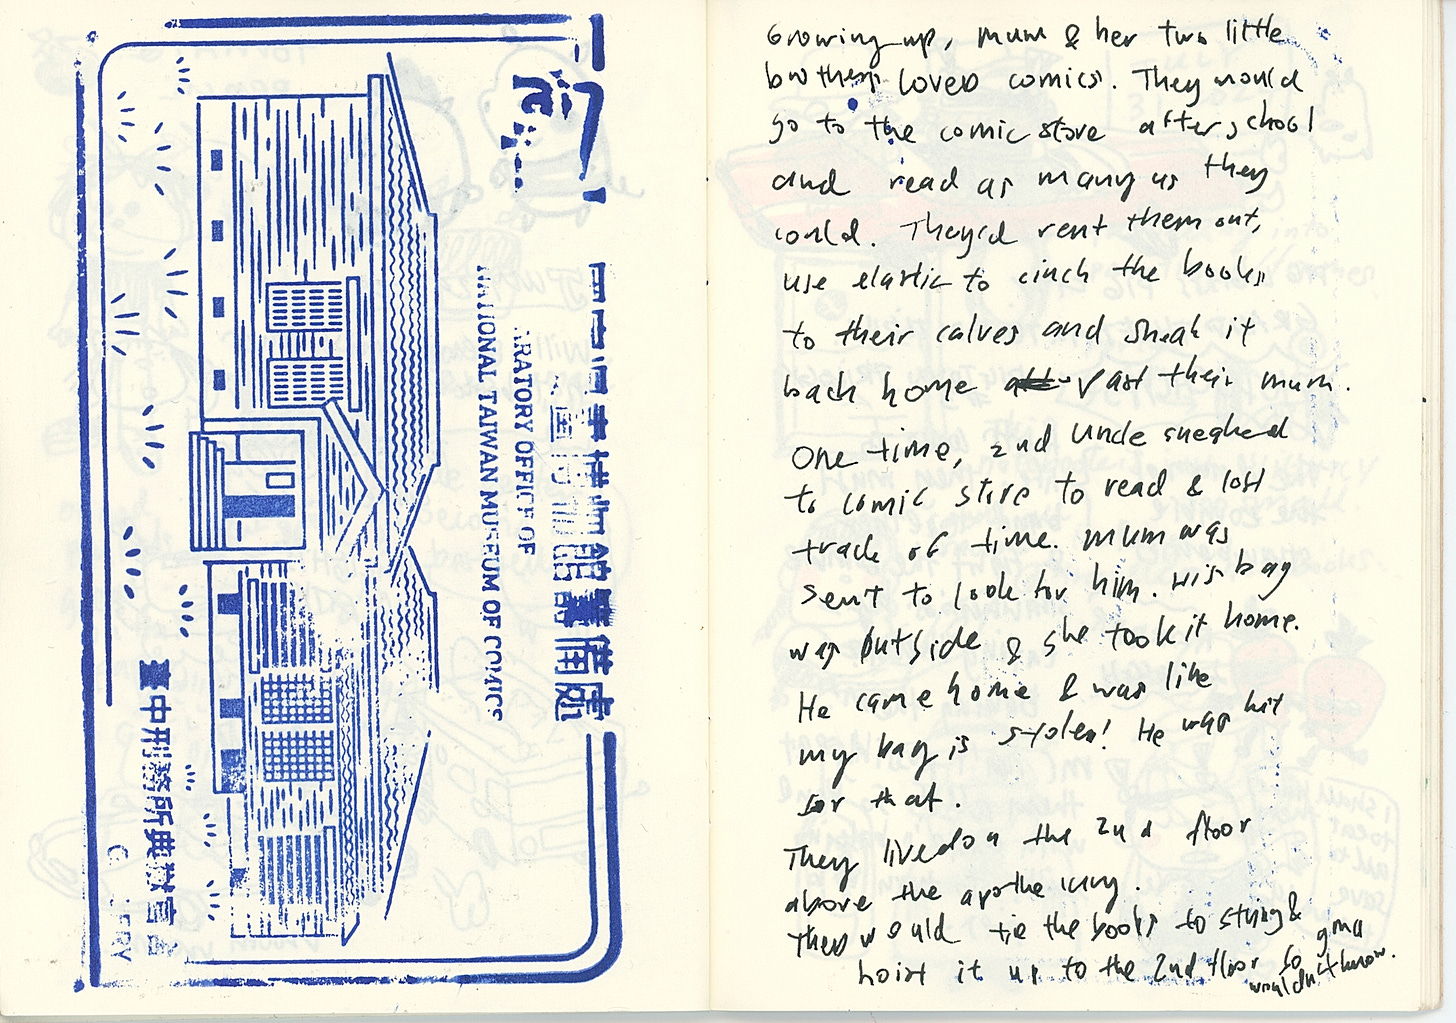 RATORY OFFICE OF
NATIONAL TAIWAN MUSEUM OF COMICS
臺中刑務所典獄官舍
Growing up, mum & her two little
brothers loved comics. They would
go to the comic store after school
and read as many as they
could. They'd rent them out,
use elastic to cinch the books
to their calves and sneak it
back home past their mum.
One time, 2nd uncle sneaked
to comic store to read & lost
track of time. mum was
sent to look for him. His bag
was outside & she took it home.
He came home & was like
my bag is stolen! He was hit
for that.
They lived on the 2nd floor
above the apothecary.
They would tie the books to string &
hoist it up to the 2nd floor so gma
wouldn't know.